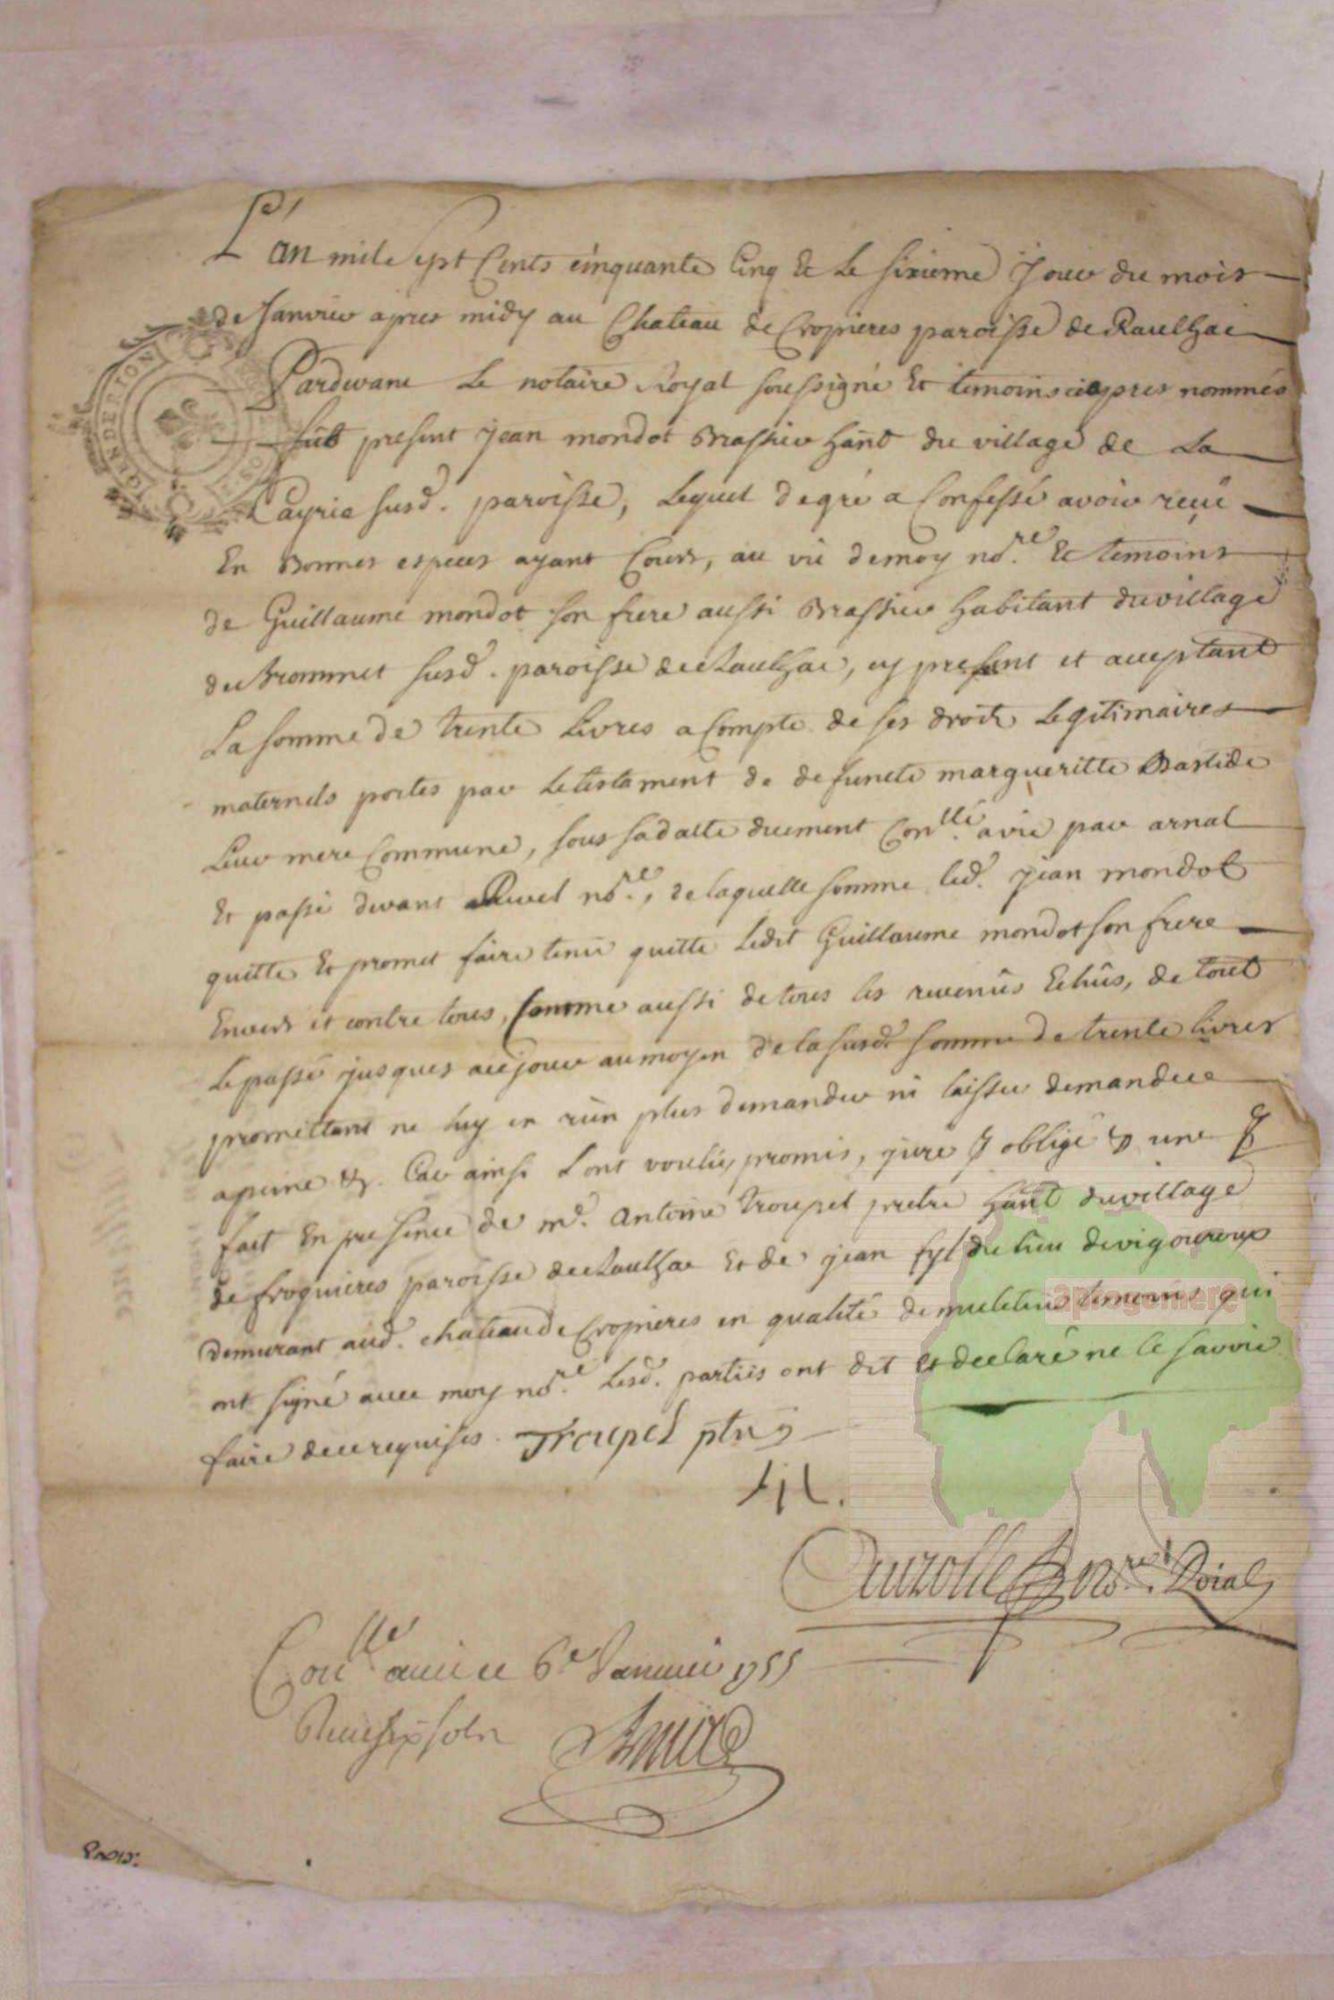 L'an mile sept Cents cinquante Cinq Et Le sixieme Jour du mois
de Janvier apres midy au Chateau de Cropieres paroisse de Raulhac
Pardevant Le notaire Royal soussigné Et temoins cy apres nommés
fût present jean mondot Brassier hânt du village de La
Cayrie susd. paroisse, Lequel de gré a Confessé avoir reçu
En Bonnes especes ayant Cours, au vû de moy nore. Et temoins
de Guillaume mondot son frere aussi Brassier habitant du village
du Brommet susd. paroisse de Raulhac, cy present et acceptant
La somme de trente Livres a Compte de ses droits Legitimaires
maternels portés par Le testament de defuncte margueritte Bastide
Leur mere Commune, sous sa datte duement Conllé. avis par arnal
Et passé devant Revel nore, de laquelle somme led. jean mondot
quitte Et promet faire tenir quitte Ledit Guillaume mondot son frere
Envers et contre tous, Comme aussi de tous les revenûs Echûs, de tout
Le passé jusques aujour au moyen de la susd. somme de trente livres
promettant ne luy en rien plus demander ni laisser demander
a peine &. Car ainsi L'ont voulu, promis, juré & obligé & une &
fait En presence de mr. Antoine Troupel pretre hânt du village
de froquieres paroisse de Raulhac Et de jean fyl du lieu de vigouroux
demurant aud. chateau de Cropieres en qualité de muletier temoins qui
ont signé avec moy nore. Lesd. parties ont dit et declaré ne le savoir
faire de ce requises. Troupel ptre
fil.
nore. Roial
Conlle a ce 6e Janvier 1755
sols
GEN DE RIOM
apregemere